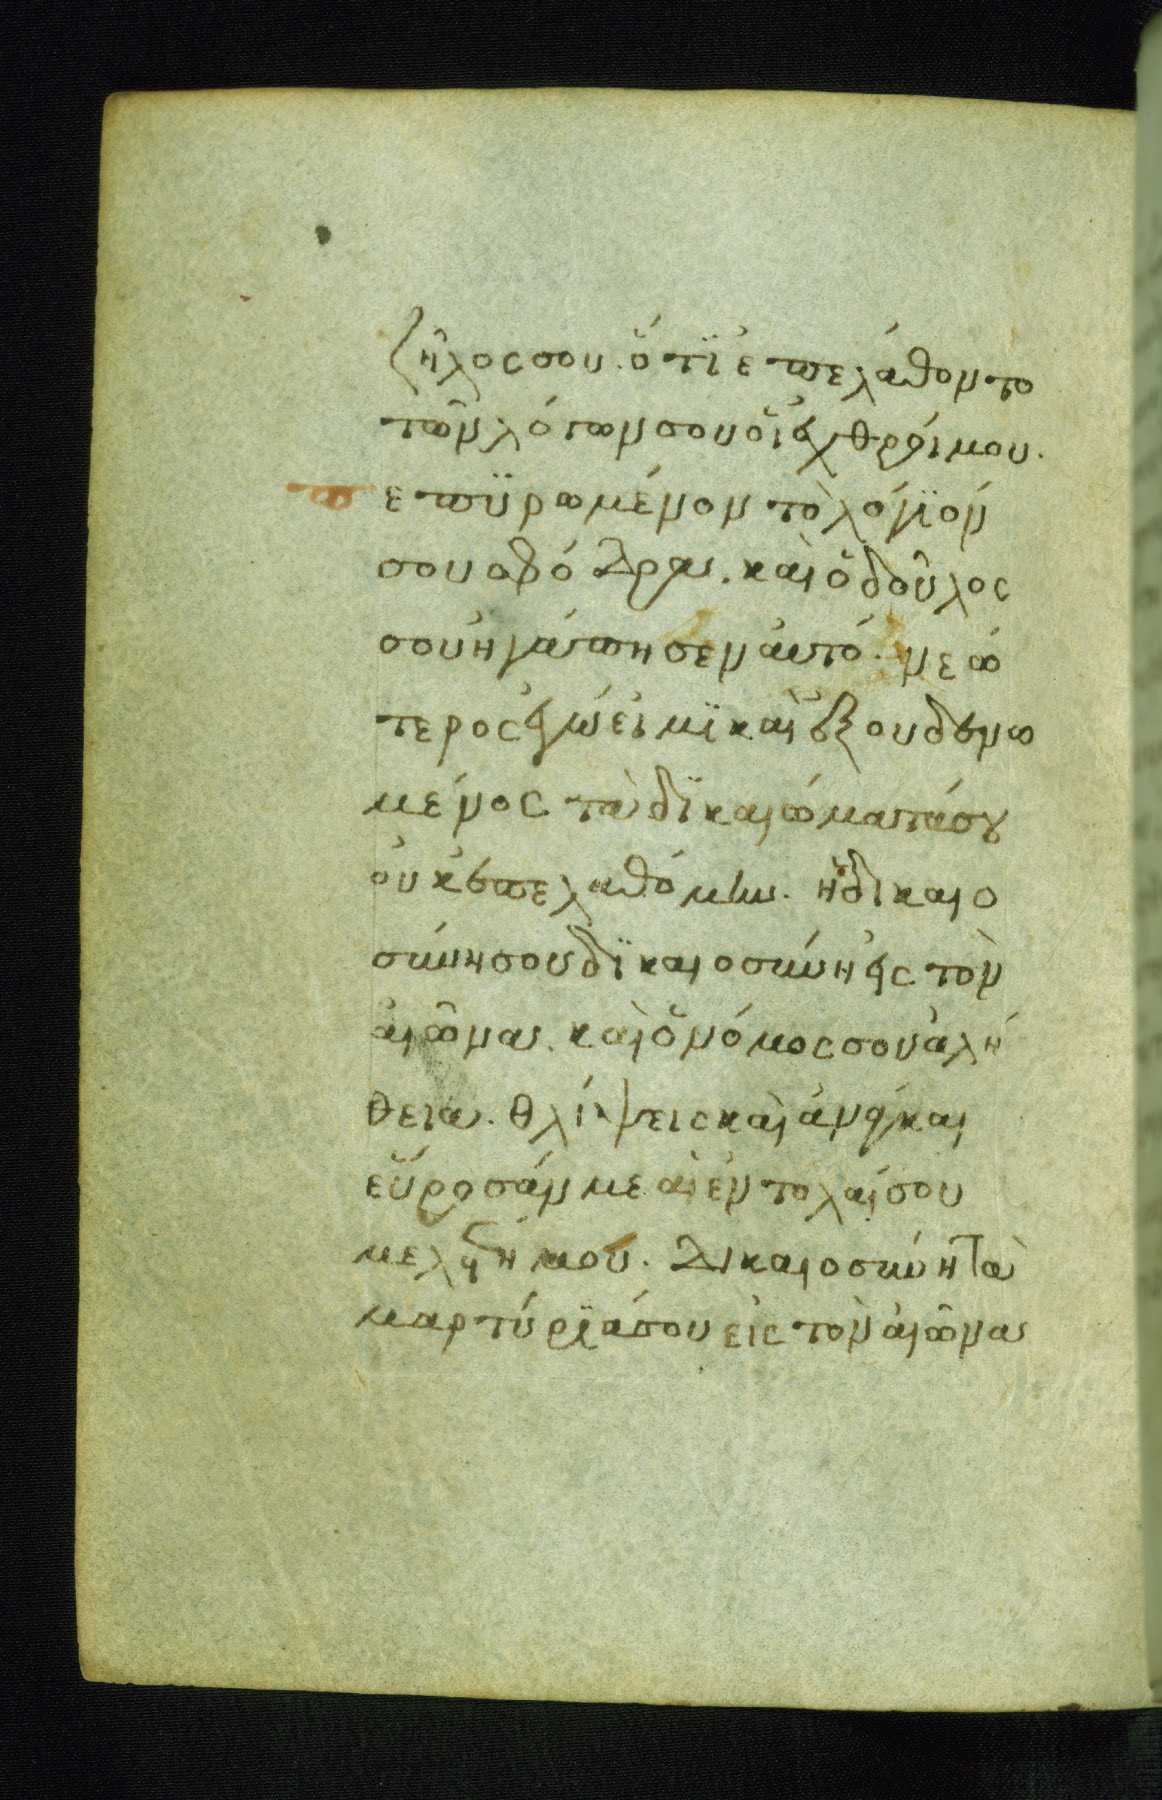 ζῆλος σου. ὅτϊ ἐπελάθοντο
τῶν λόγων σου οἱ ἐχθροί μου.
πεπϋρωμένον τὸ λόγϊόν
σου σφόδρα. καὶ ὁ δοῦλος
σου ἠγάπησεν αὐτό. νεώ
τερος ἐγώ εἰμϊ καὶ ἐξουδενω
μένος τὰ δϊκαιώματά σου
οὐκ ἐπελαθόμην. ἡ δικαιο
σύνη σου δϊκαιοσύνη εἰς τὸν
αἰῶνα. καὶ ὁ νόμος σου ἀλή
θεια. θλίψεις καὶ ἀνάγκαι
εὕροσάν με αἱ ἐντολαί σου
μελέτη μου. Δικαιοσύνη τὰ
μαρτύρϊά σου εἰς τὸν αἰῶνα